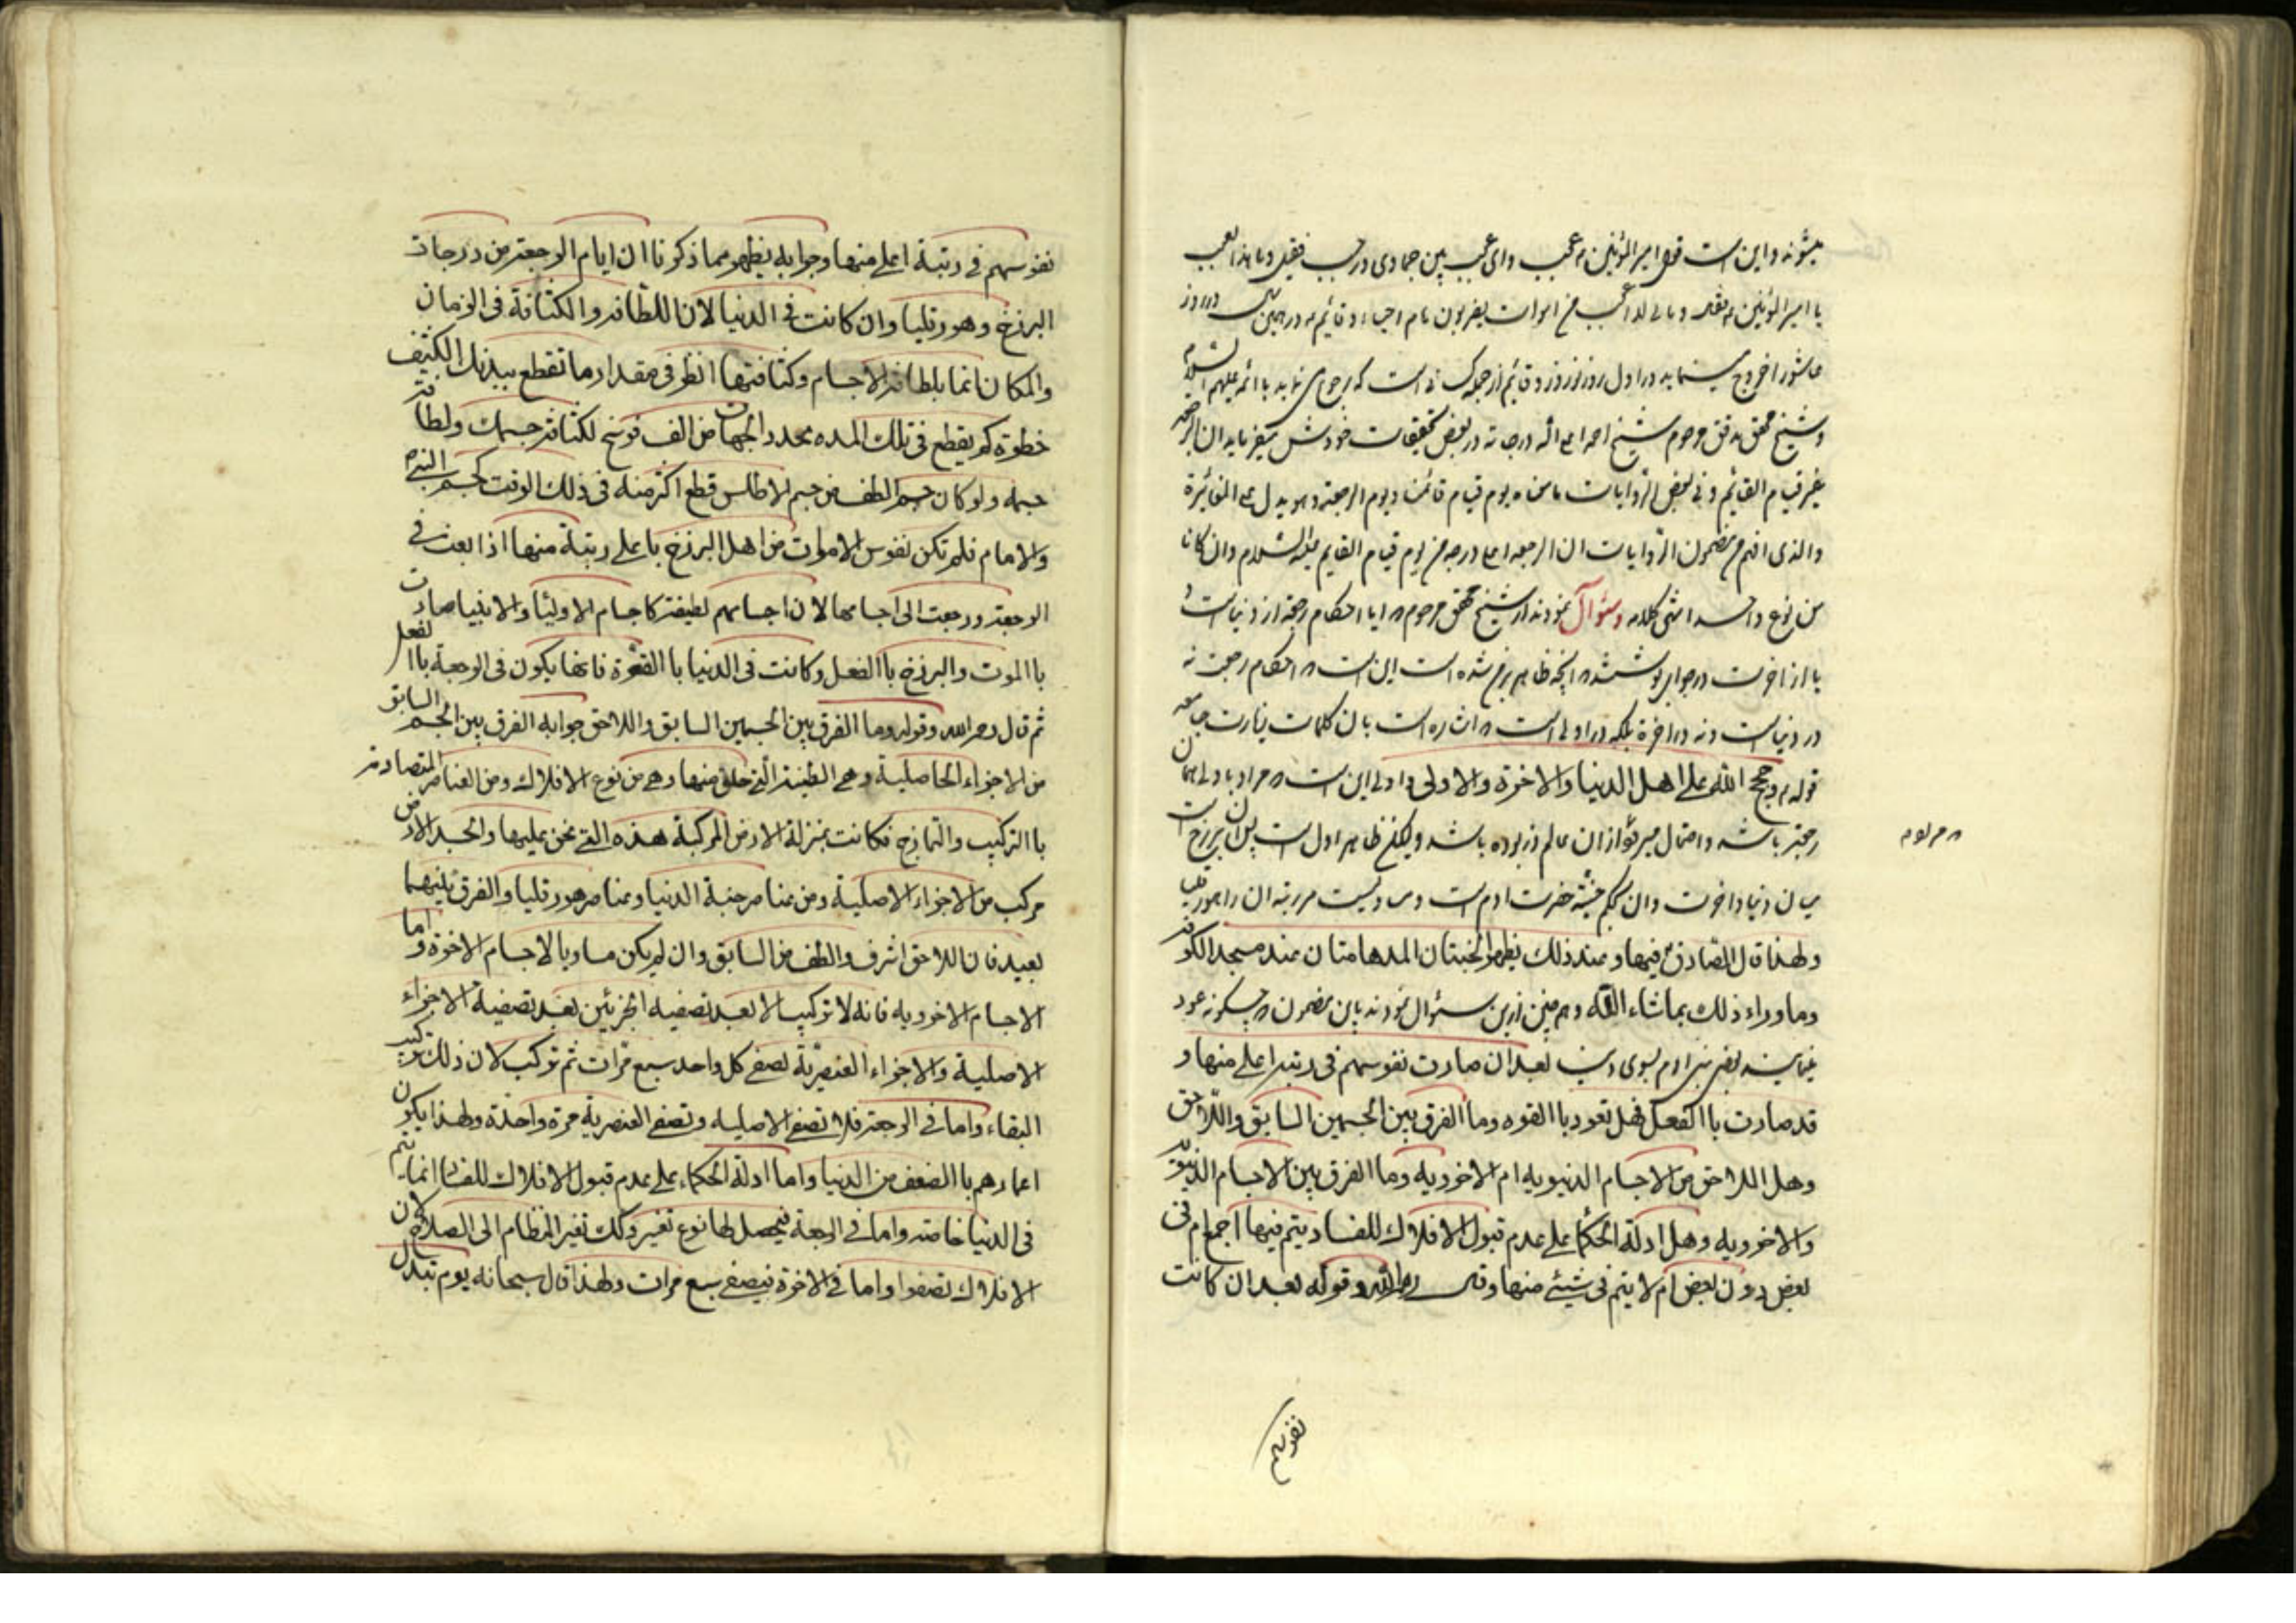 میشوند و این است قول امیر المؤمنین ع عجب و ای عجب بین جمادی و رجب فقیل و ما هذا العجب
یا امیر المؤمنین فقال و مالی لا اعجب من اموات یضربون هام احیاء و قائم در همین در روز
عاشورا خروج مینماید در اول روز نوروز و قائم از جمله کسانی است که رجوع مینماید با ائمه علیهم السلام
و شیخ محقق مدقق مرحوم شیخ احمد اعلی الله درجاته در بعض تحقیقات خودش میفرماید ان الرجعة
غیر قیام القائم و فی بعض الروایات ما معناه یوم قیام قائمنا و یوم الرجعة و هو یدل علی المغایرة
والذی افهم من مضمون الروایات ان الرجعه اعلی درجه من یوم قیام القایم علیه السلام و ان کانا
من نوع واحد انتهی کلامه وسئوال نمودند از شیخ محقق مرحوم ایا احکام رجعة از دنیاست و
یا از اخرت در جواب نوشتند انچه ظاهر شده است این است احکام رجعت نه
در دنیاست و نه در اخرة بلکه در اولی است اشاره است بان کلمات زیارت جامعه
قوله ع و حجج الله علی اهل الدنیا والاخرة والاولی و اولی این است مراد باولی همان
رجعة باشد و احتمال میرود از ان عالم ذر بوده باشد ولیکن ظاهر اول است پس ان برزخ است
میان دنیا و اخرت و ان بحکم جنت حضرت ادم است و مر رتبه ان را هورقلیا
ولهذا قال الصادق ع فیها وعند ذلک یظهر الجنتان المدهامتان عند مسجد الکوفه
وما وراء ذلک بما شاء الله و هم چنین از این سئوال نمودند باین مضمون چگونه عود
مینماید نفس بنی ادم بسوی بعد ان صارت نفوسهم فی رتبة اعلی منها و
قد صارت باالفعل فهل تعود باالقوه وما الفرق بین الجسمین السابق واللاحق
وهل اللاحق من الاجسام الدنیویه ام الاخرویه وما الفرق بین الاجسام الدنیویه
والاخرویه وهل ادلة الحکما علی عدم قبول الافلاک للفساد یتم فیها اجمع ام فی
بعض دون بعض ام لا یتم فی شیئ منها وقال رحمه الله وقوله بعد ان کانت
مرلوم
نفوسهم
نفوسهم فی رتبة اعلی منها وجوابه یظهر مما ذکرنا ان ایام الرجعة من درجات
البرزخ وهورقلیا وان کانت فی الدنیا لان اللطافة والکثافة فی الزمان
والمکان انما بلطافة الاجسام وکثافتها انظر فی مقدار ما تقطع ببدنک الکثیف
خطوة کم یقطع فی تلک المده محدد الجهات من الف فرسخ لکثافة جسمک ولطافة
جسمه ولو کان جسم الطف من جسم الاطلس قطع اکثر منه فی ذلک الوقت کجسم النبی ص
والامام فلم تکن نفوس الاموات من اهل البرزخ باعلی رتبة منها اذا بعث فی
الرجعة ورجعت الی اجسامها لان اجسامهم لطیفة کاجسام الاولیا والانبیا صارت
باالموت والبرزخ باالفعل وکانت فی الدنیا باالقوة فانها یکون فی الرجعة باالفعل
ثم قال رحمه الله وقوله وما الفرق بین الجسمین السابق واللاحق جوابه الفرق بین الجسم السابق
من الاجزاء الحاصلیة وهی الطینة التی خلق منها وهی من نوع الافلاک ومن العناصر المتصادمة
باالترکیب والتمازج فکانت بمنزلة الارض المرکبة هذه التی نحن علیها والجسد الارض
مرکب من الاجزاء الاصلیة ومن عناصر جنبة الدنیا وعناصر هورقلیا والفرق بینهما
بعید فان اللاحق اشرف والطف من السابق وان لم یکن مساویا لاجسام الاخرة واما
الاجسام الاخرویه فانه لا ترکیب الا بعد تصفیه الجزئین بعد تصفیة الاجزاء
الاصلیة والاجزاء العنصریّة تصفی کل واحد سبع مرات ثم ترکب لان ذلک ترکیب
البقاء واما فی الرجعة فلا تصفی الاصلیه وتصفی العنصریة مرة واحدة ولهذا یکون
اعمارهم باالضعف من الدنیا واما ادلة الحکماء علی عدم قبول الافلاک للفساد انما یتم
فی الدنیا خاصة واما فی الرجعة فیحصل لها نوع تغیر وذلک تغیر النظام الی الصلاح لان
الافلاک تصفوا واما فی الاخرة فیصفی سبع مرات ولهذا قال سبحانه یوم تبدل